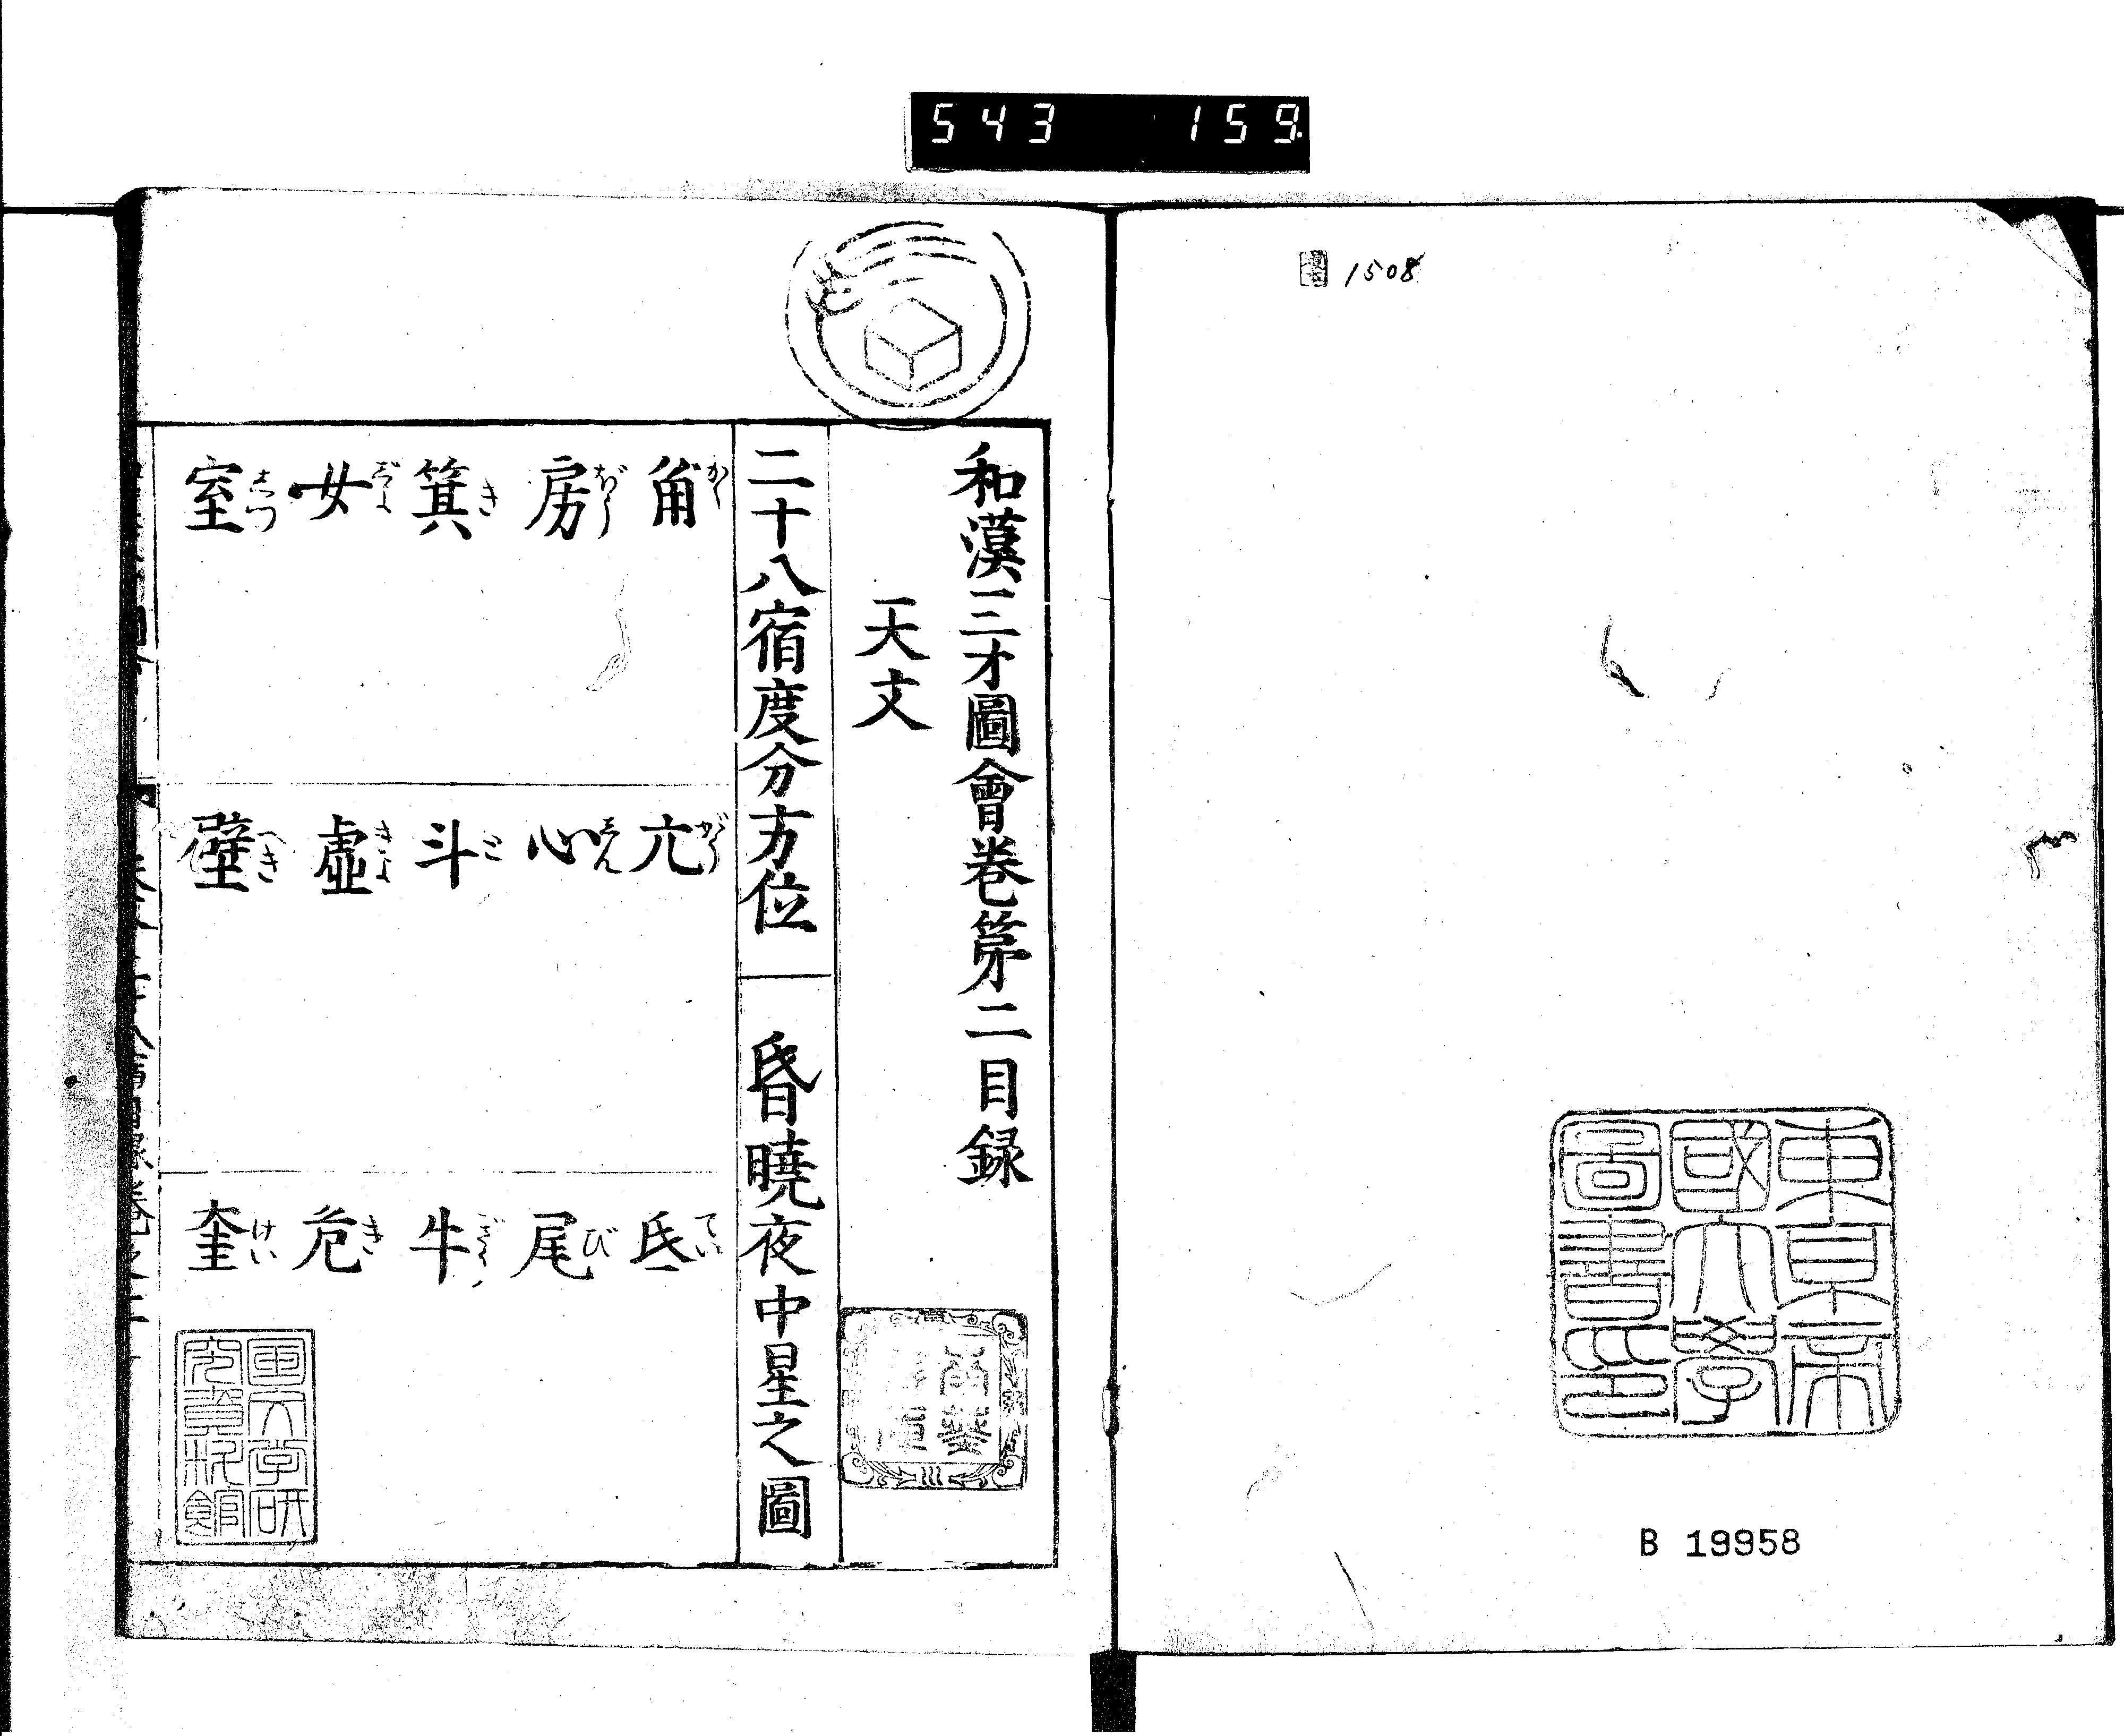 543 159
1508
東京帝
國大學
圖書印
B 19958
和漢三才圖會卷第二目録
天文
二十八宿度分方位
昏曉夜中星之圖
角 かく
亢 かう
氐 てい
房 ばう
心 しん
尾 び
箕 き
斗 と
牛 ぎう
女 ぢよ
虚 きよ
危 き
室 しつ
壁 へき
奎 けい
国文学研
究資料館